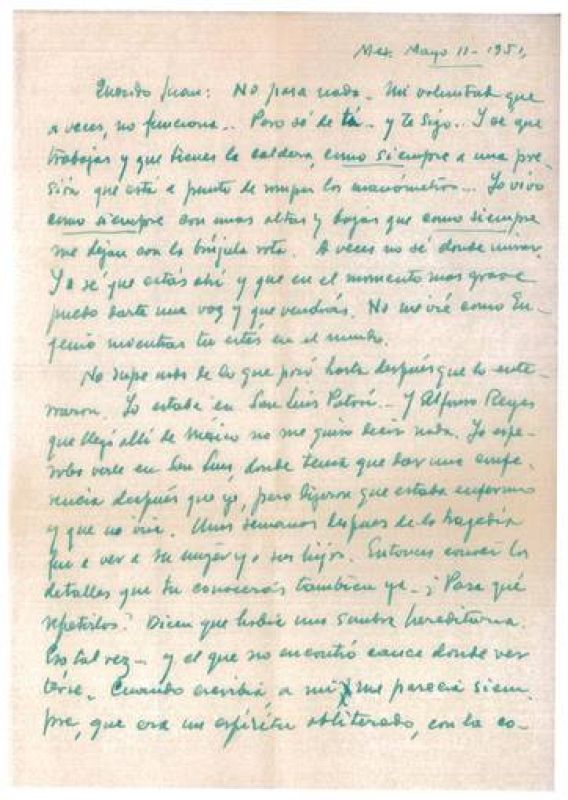 Mex. Mayo 11 - 1951,
Querido Juan: No pasa nada.. Mi voluntad que
a veces, no funciona.. Pero sé de tí.. y te sigo.. Y sé que
trabajas y que tienes la caldera, como siempre a una pre-
sión que está a punto de romper los manómetros... Yo vivo
como siempre con unas altas y bajas que como siempre
me dejan con la brújula rota. A veces no sé donde mirar.
Ya sé que estás ahí y que en el momento mas grave
puedo darte una voz y que vendrás. No me iré como Eu-
genio mientras tu estés en el mundo.
No supe nada de lo que pasó hasta después que lo ente-
rraron. Yo estaba en San Luis Potosí.- Y Alfonso Reyes
que llegó allí de México no me quiso decir nada. Yo espe-
raba verle en San Luis, donde tenía que dar una confe-
rencia después que yo, pero dijeron que estaba enfermo
y que no iría. Unas semanas despues de la tragedia
fui a ver a su mujer y a sus hijos. Entonces conocí los
detalles que tu conocerás tambien ya.. ¿Para qué
repetirlos? Dicen que había una sombra hereditaria.
Eso tal vez... y el que no encontró cauce donde ver
terse.. Cuando escribía a mi me parecía siem-
pre, que era un espíritu obliterado, con la co-